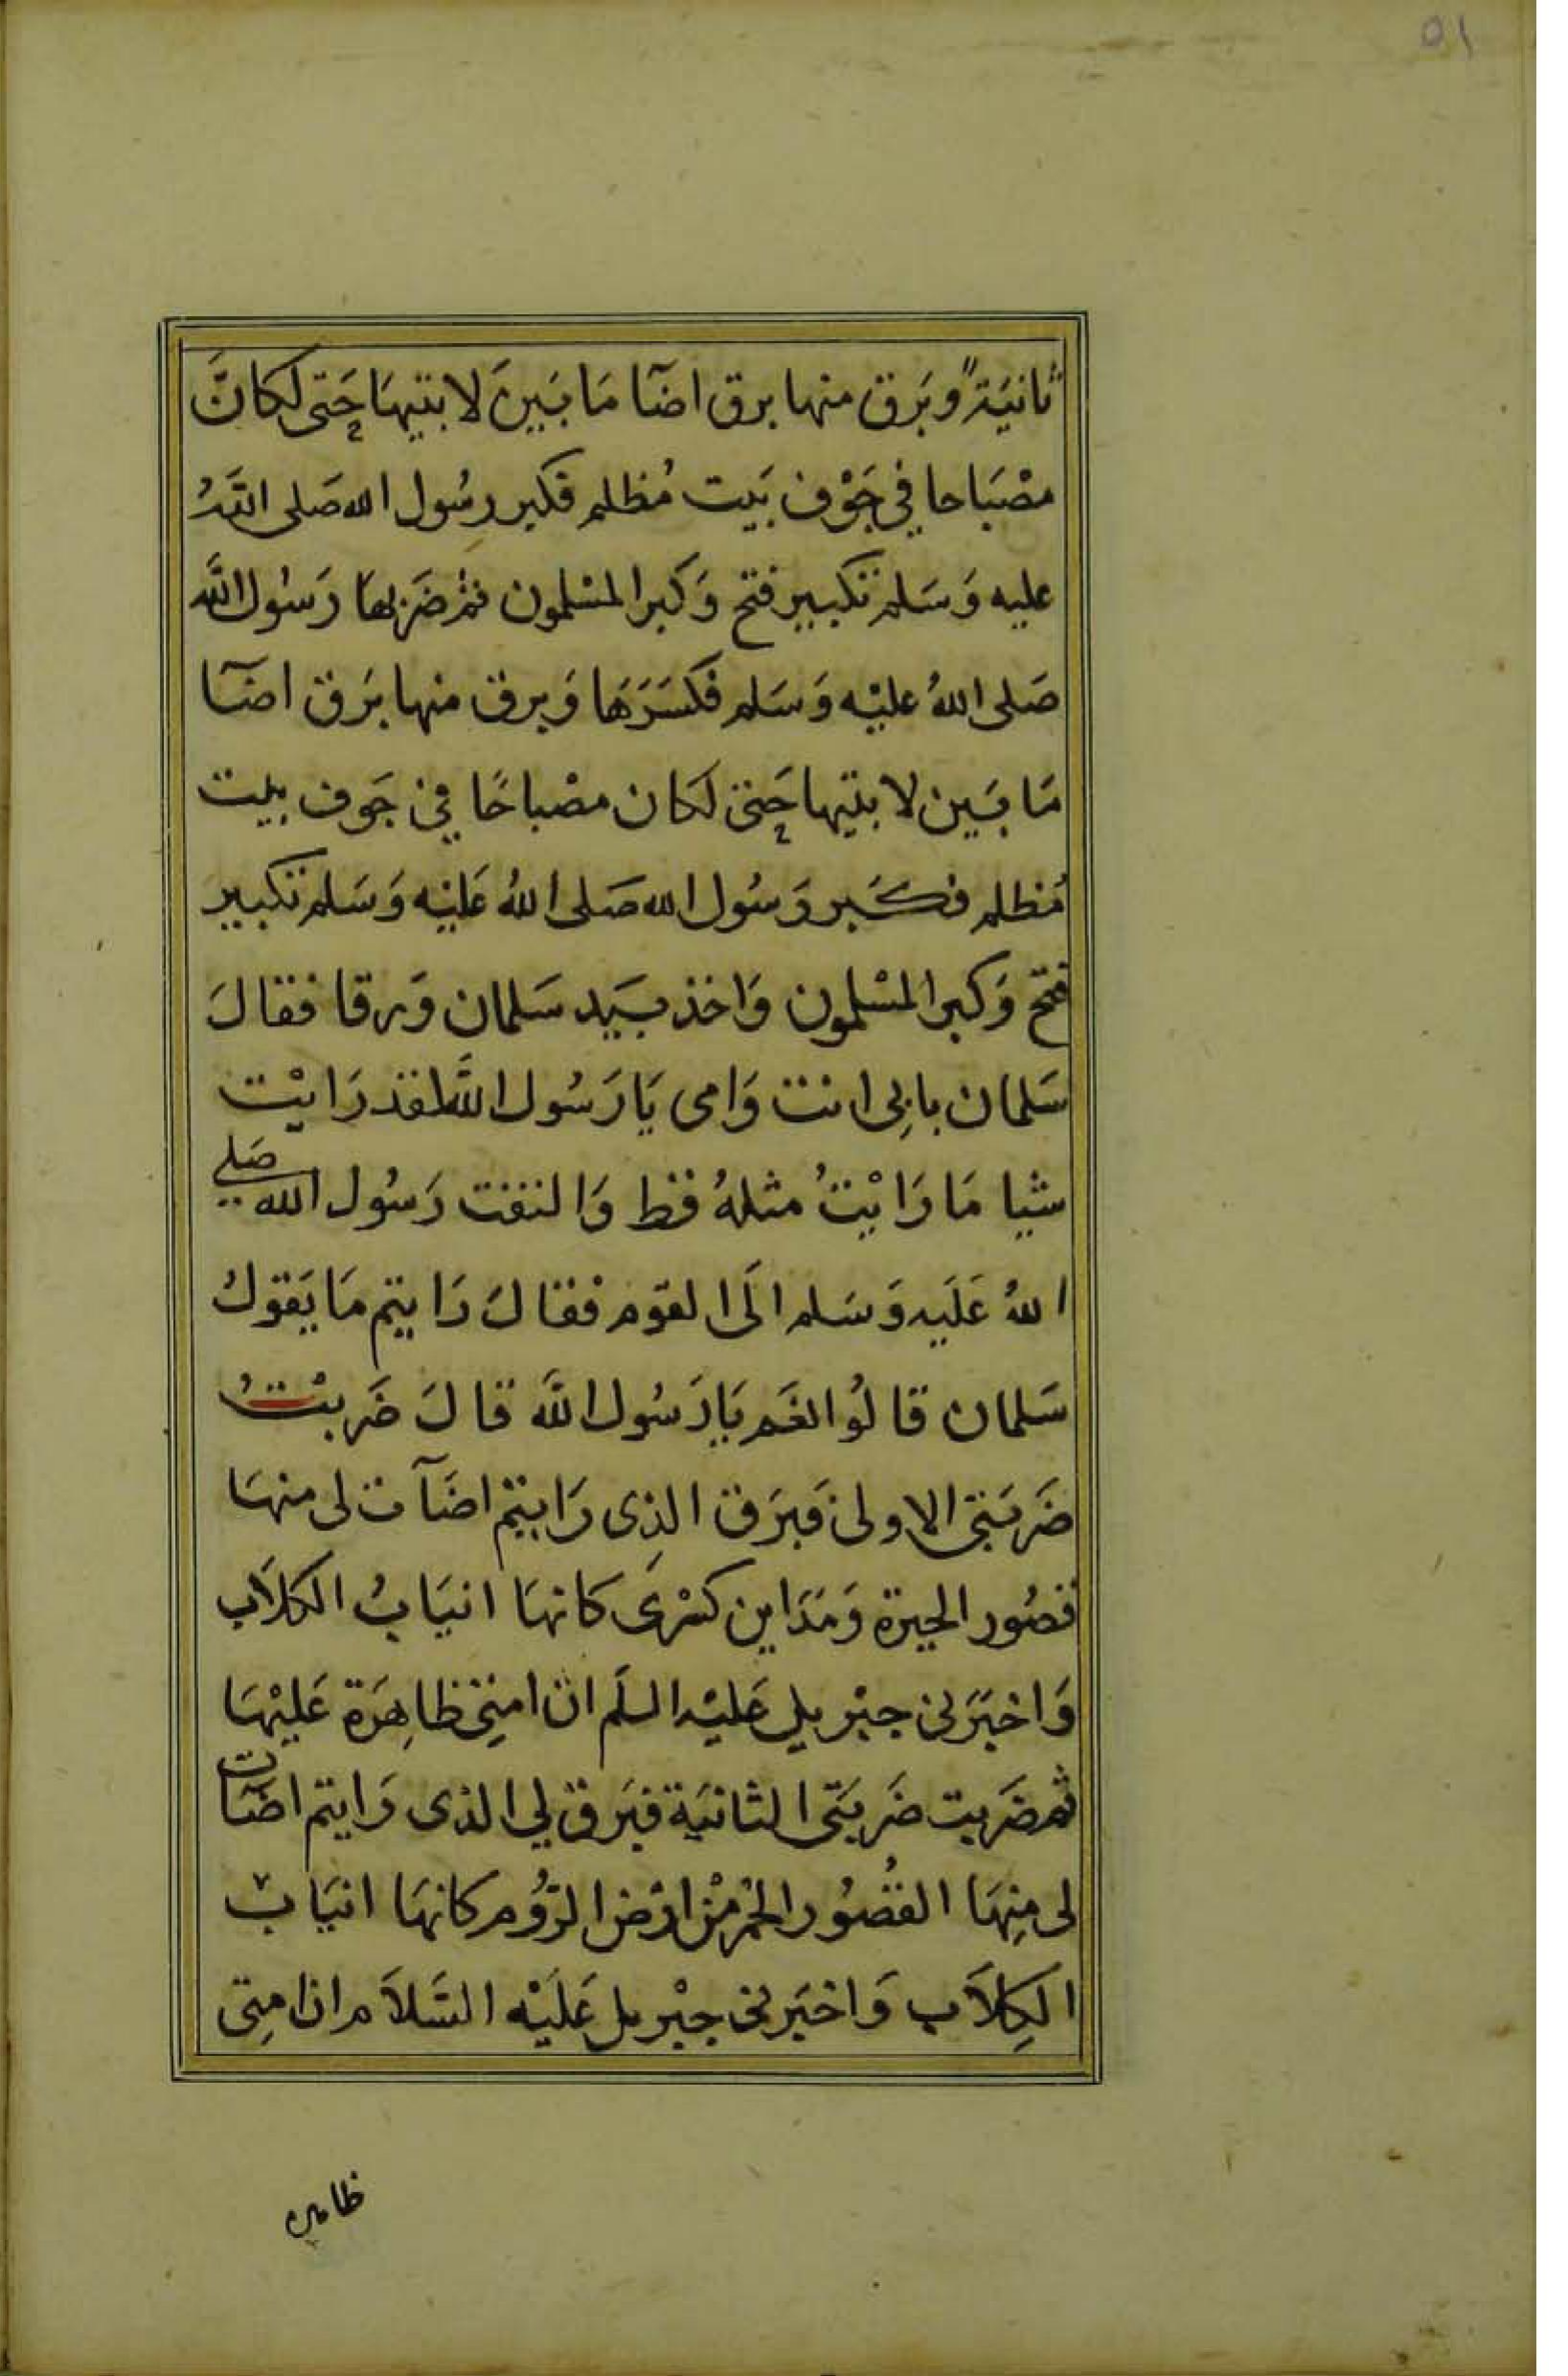 ٥١
ثانيَةً وبَرق منها برق اضآ مَا بَينَ لابتيهَا حَتى لكانَّ
مصْبَاحا في جَوْف بَيت مُظلم فكبر رسُول الله صَلى اللّهُ
عليه وَسَلم تكبير فتح وَكبر المسْلمون ثم ضَربهَا رَسُول اللَّه
صَلى اللهُ عليْه وَسَلم فكسَرَهَا وَبرق منها بَرق اضآ
مَا بَين لابتيها حَتى لكان مصْباحًا في جَوف بيت
مُظلم فكَبر رَسُول الله صَلى اللهُ عَليْه وَسَلم تكبير
فتح وَكبر المسْلمون وَاخذ بيَد سَلمان وَرقا فقالَ
سَلمان بابِي انت وَامى يَا رَسُول اللَّه لقد رَايْت
شيا مَا رَايْتُ مثلهُ قط وَالتفت رَسُول الله صَلى
اللهُ عَلَيه وَسَلم الَى القوم فقالَ رَايتم مَا يَقولُ
سَلمان قالُوا نعَم يَا رَسُول اللَّه قالَ ضَربْتُ
ضَربَتى الاولى فبَرَق الذِى رَايتم اضَآت لى منهَا
قصُور الحيرة وَمَدَاين كسْرَى كانهَا انيَابُ الكلاَب
وَاخبَرَنى جبْريل عَليْه السلَم ان امتِى ظاهِرَة عَليْهَا
ثم ضَربت ضَربَتى الثانيَة فبَرق لي الذى رَايتم اضَآت
لى مِنهَا القصُور الحُمْر مْن ارْض الرُّوم كانهَا انيَاب
الكِلاَب وَاخبَرنى جبْريل عَلَيْه السَّلاَم ان امتِى
ظاهره